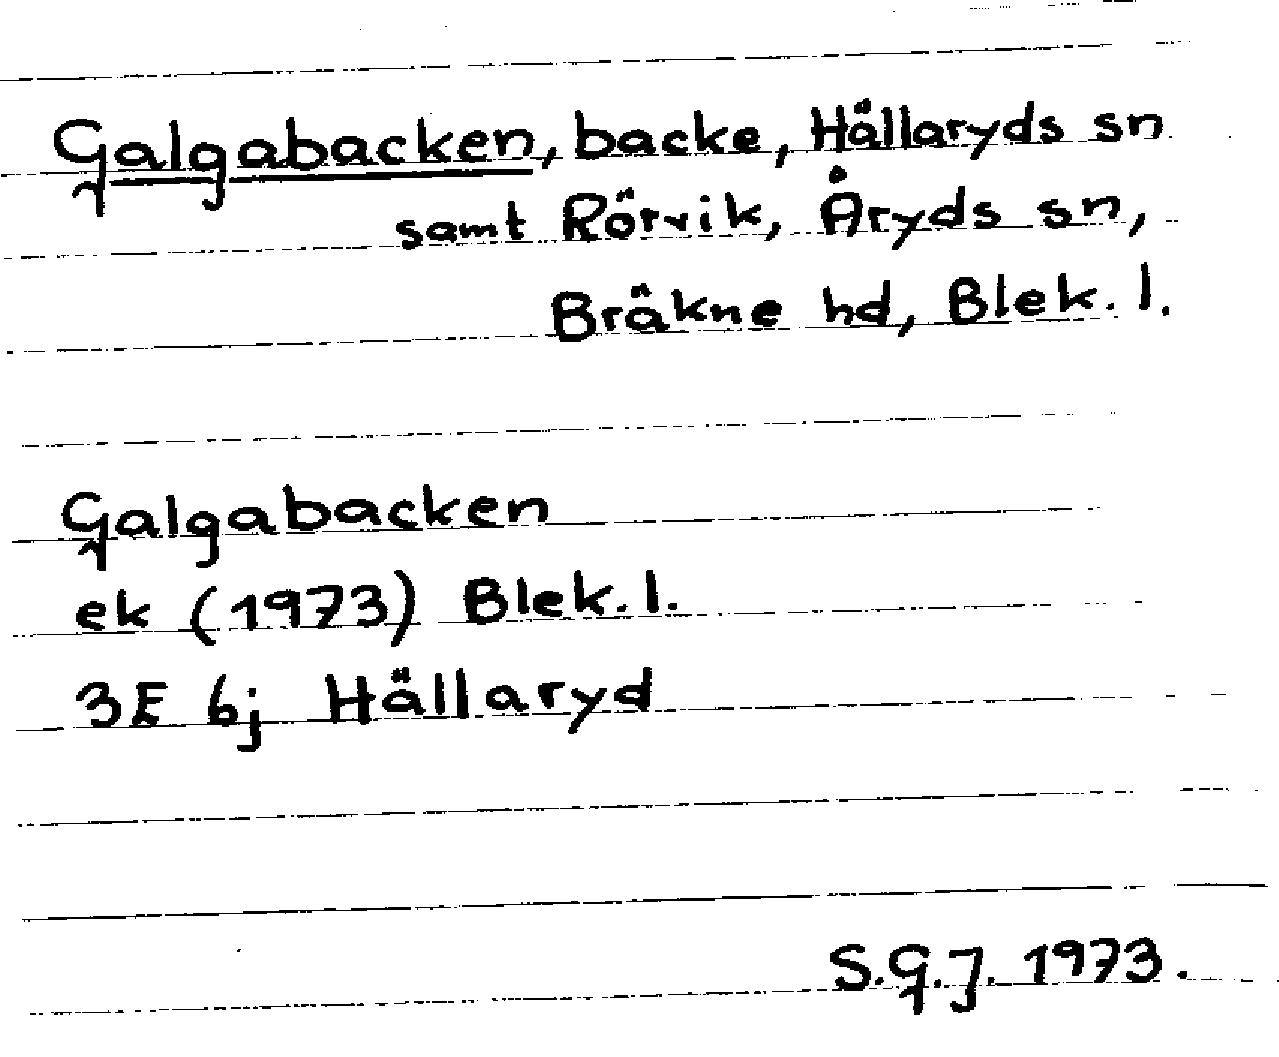 Galgabacken, backe, Hällaryds sn
samt Rörvik, Åryds sn,
Bräkne hd, Blek. l.
Galgabacken
ek (1973) Blek. l.
3E 6j Hällaryd
S.G.J. 1973.